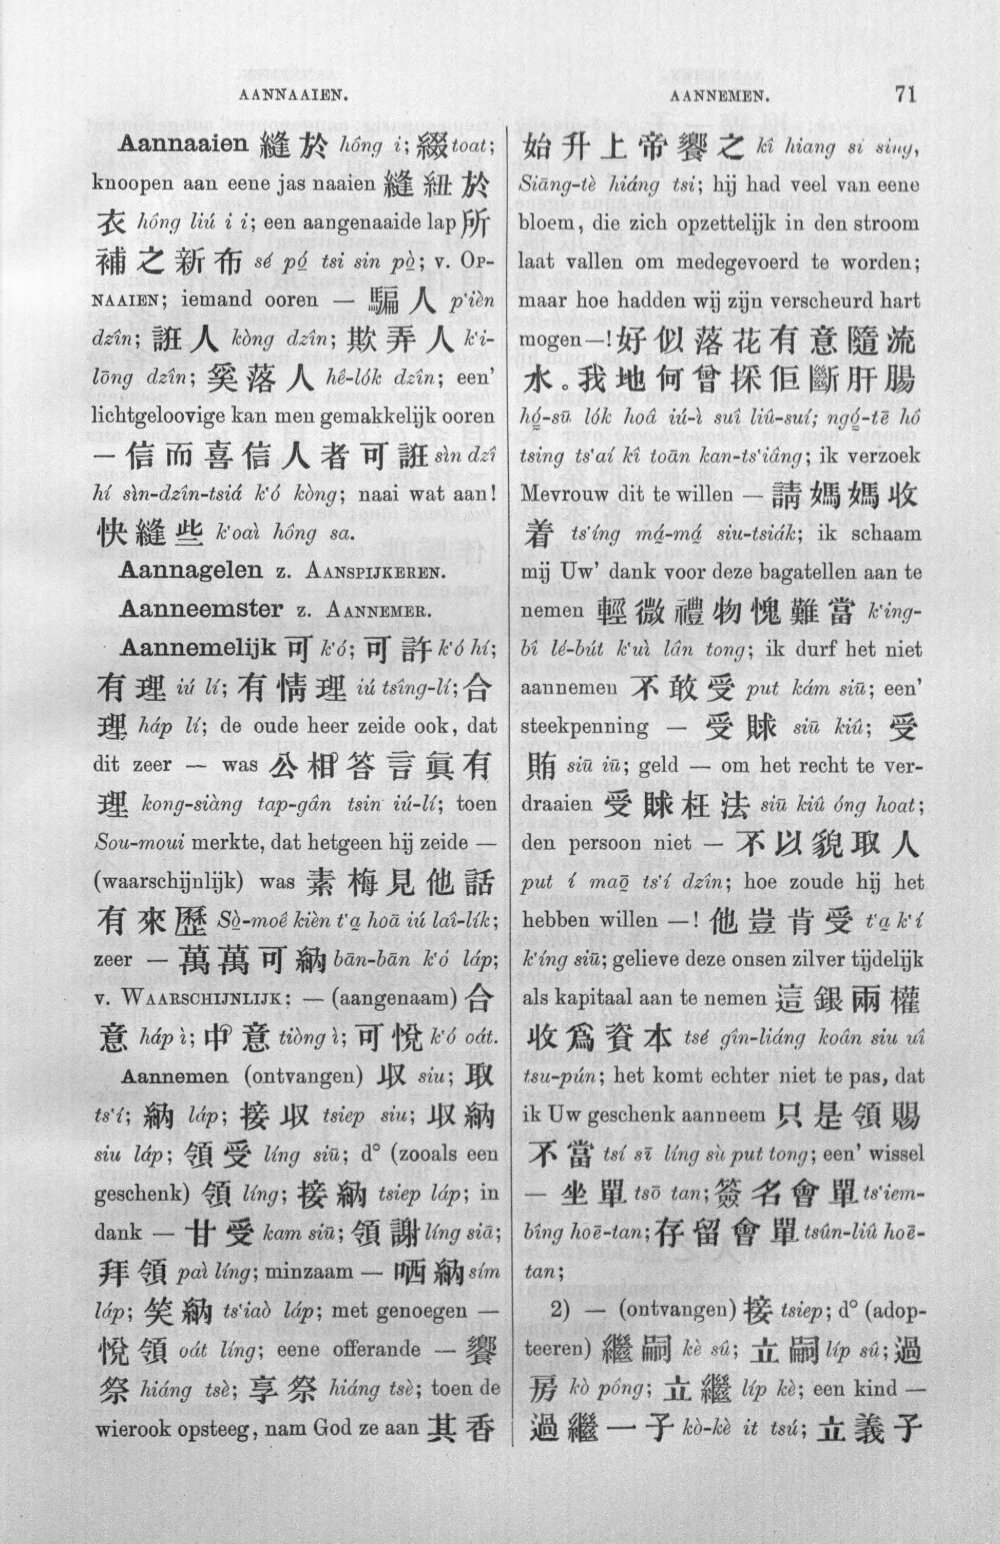 AANNAAIEN.
AANNEMEN.
71
Aannaaien 縫於 hông i; 綴 toat;
knoopen aan eene jas naaien 縫紐於
衣 hông liú i i; een aangenaaide lap 所
補之新布 sé pó̤ tsi sin pò̤; v. OP-
NAAIEN; iemand ooren — 騙人 p‘ièn
dzîn; 誑人 kòng dzîn; 欺弄人 k‘i-
lōng dzîn; 奚落人 hê-lók dzîn; een’
lichtgeloovige kan men gemakkelijk ooren
— 信而喜信人者可誑 sìn dzî
hí sìn-dzîn-tsiá k‘ó kòng; naai wat aan!
快縫些 k‘oaì hông sa.
Aannagelen z. AANSPIJKEREN.
Aanneemster z. AANNEMER.
Aannemelijk 可 k‘ó; 可許 k‘ó hí;
有理 iú lí; 有情理 iú tsîng-lí; 合
理 háp lí; de oude heer zeide ook, dat
dit zeer — was 公相答言眞有
理 kong-siàng tap-gân tsin iú-lí; toen
Sou-moui merkte, dat hetgeen hij zeide —
(waarschijnlijk) was 素梅見他話
有來歷 Sò̤-moê kièn t‘a̤ hoā iú laî-lík;
zeer — 萬萬可納 bān-bān k‘ó láp;
v. WAARSCHIJNLIJK: — (aangenaam) 合
意 háp ì; 中意 tiòng ì; 可悅 k‘ó oát.
Aannemen (ontvangen) 收 siu; 取
ts‘í; 納 láp; 接收 tsiep siu; 收納
siu láp; 領受 líng siū; d° (zooals een
geschenk) 領 líng; 接納 tsiep láp; in
dank — 甘受 kam siū; 領謝 líng siā;
拜領 paì líng; minzaam — 哂納 sím
láp; 笑納 ts‘iaò láp; met genoegen —
悅領 oát líng; eene offerande — 饗
祭 hiáng tsè; 享祭 hiáng tsè; toen de
wierook opsteeg, nam God ze aan 其香
始升上帝饗之 kî hiang sí sing,
Siāng-tè hiáng tsi; hij had veel van eene
bloem, die zich opzettelijk in den stroom
laat vallen om medegevoerd te worden;
maar hoe hadden wij zijn verscheurd hart
mogen —! 好似落花有意隨流
水。我地何曾採佢斷肝腸
hó̤-sū lók hoâ iú-ì suî liû-suí; ngó̤-tē hô
tsing ts‘aí kî toān kan-ts‘iâng; ik verzoek
Mevrouw dit te willen — 請媽媽收
着 ts‘íng má̤-má̤ siu-tsiák; ik schaam
mij Uw’ dank voor deze bagatellen aan te
nemen 輕微禮物愧難當 k‘ing-
bî lé-bút k‘uì lân tong; ik durf het niet
aannemen 不敢受 put kám siū; een’
steekpenning — 受賕 siū kiû; 受
賄 siū iū; geld — om het recht te ver-
draaien 受賕枉法 siū kiû óng hoat;
den persoon niet — 不以貌取人
put í maō̤ ts‘í dzîn; hoe zoude hij het
hebben willen —! 他豈肯受 t‘a̤ k‘í
k‘íng siū; gelieve deze onsen zilver tijdelijk
als kapitaal aan te nemen 這銀兩權
收爲資本 tsé gîn-liáng koân siu uî
tsu-pún; het komt echter niet te pas, dat
ik Uw geschenk aanneem 只是領賜
不當 tsí sī líng sù put tong; een’ wissel
— 坐單 tsō tan; 簽名會單 ts‘iem-
bîng hoē-tan; 存留會單 tsûn-liû hoē-
tan;
2) — (ontvangen) 接 tsiep; d° (adop-
teeren) 繼嗣 kè sû; 立嗣 líp sû; 過
房 kò pông; 立繼 líp kè; een kind —
過繼一子 kò-kè it tsú; 立義子